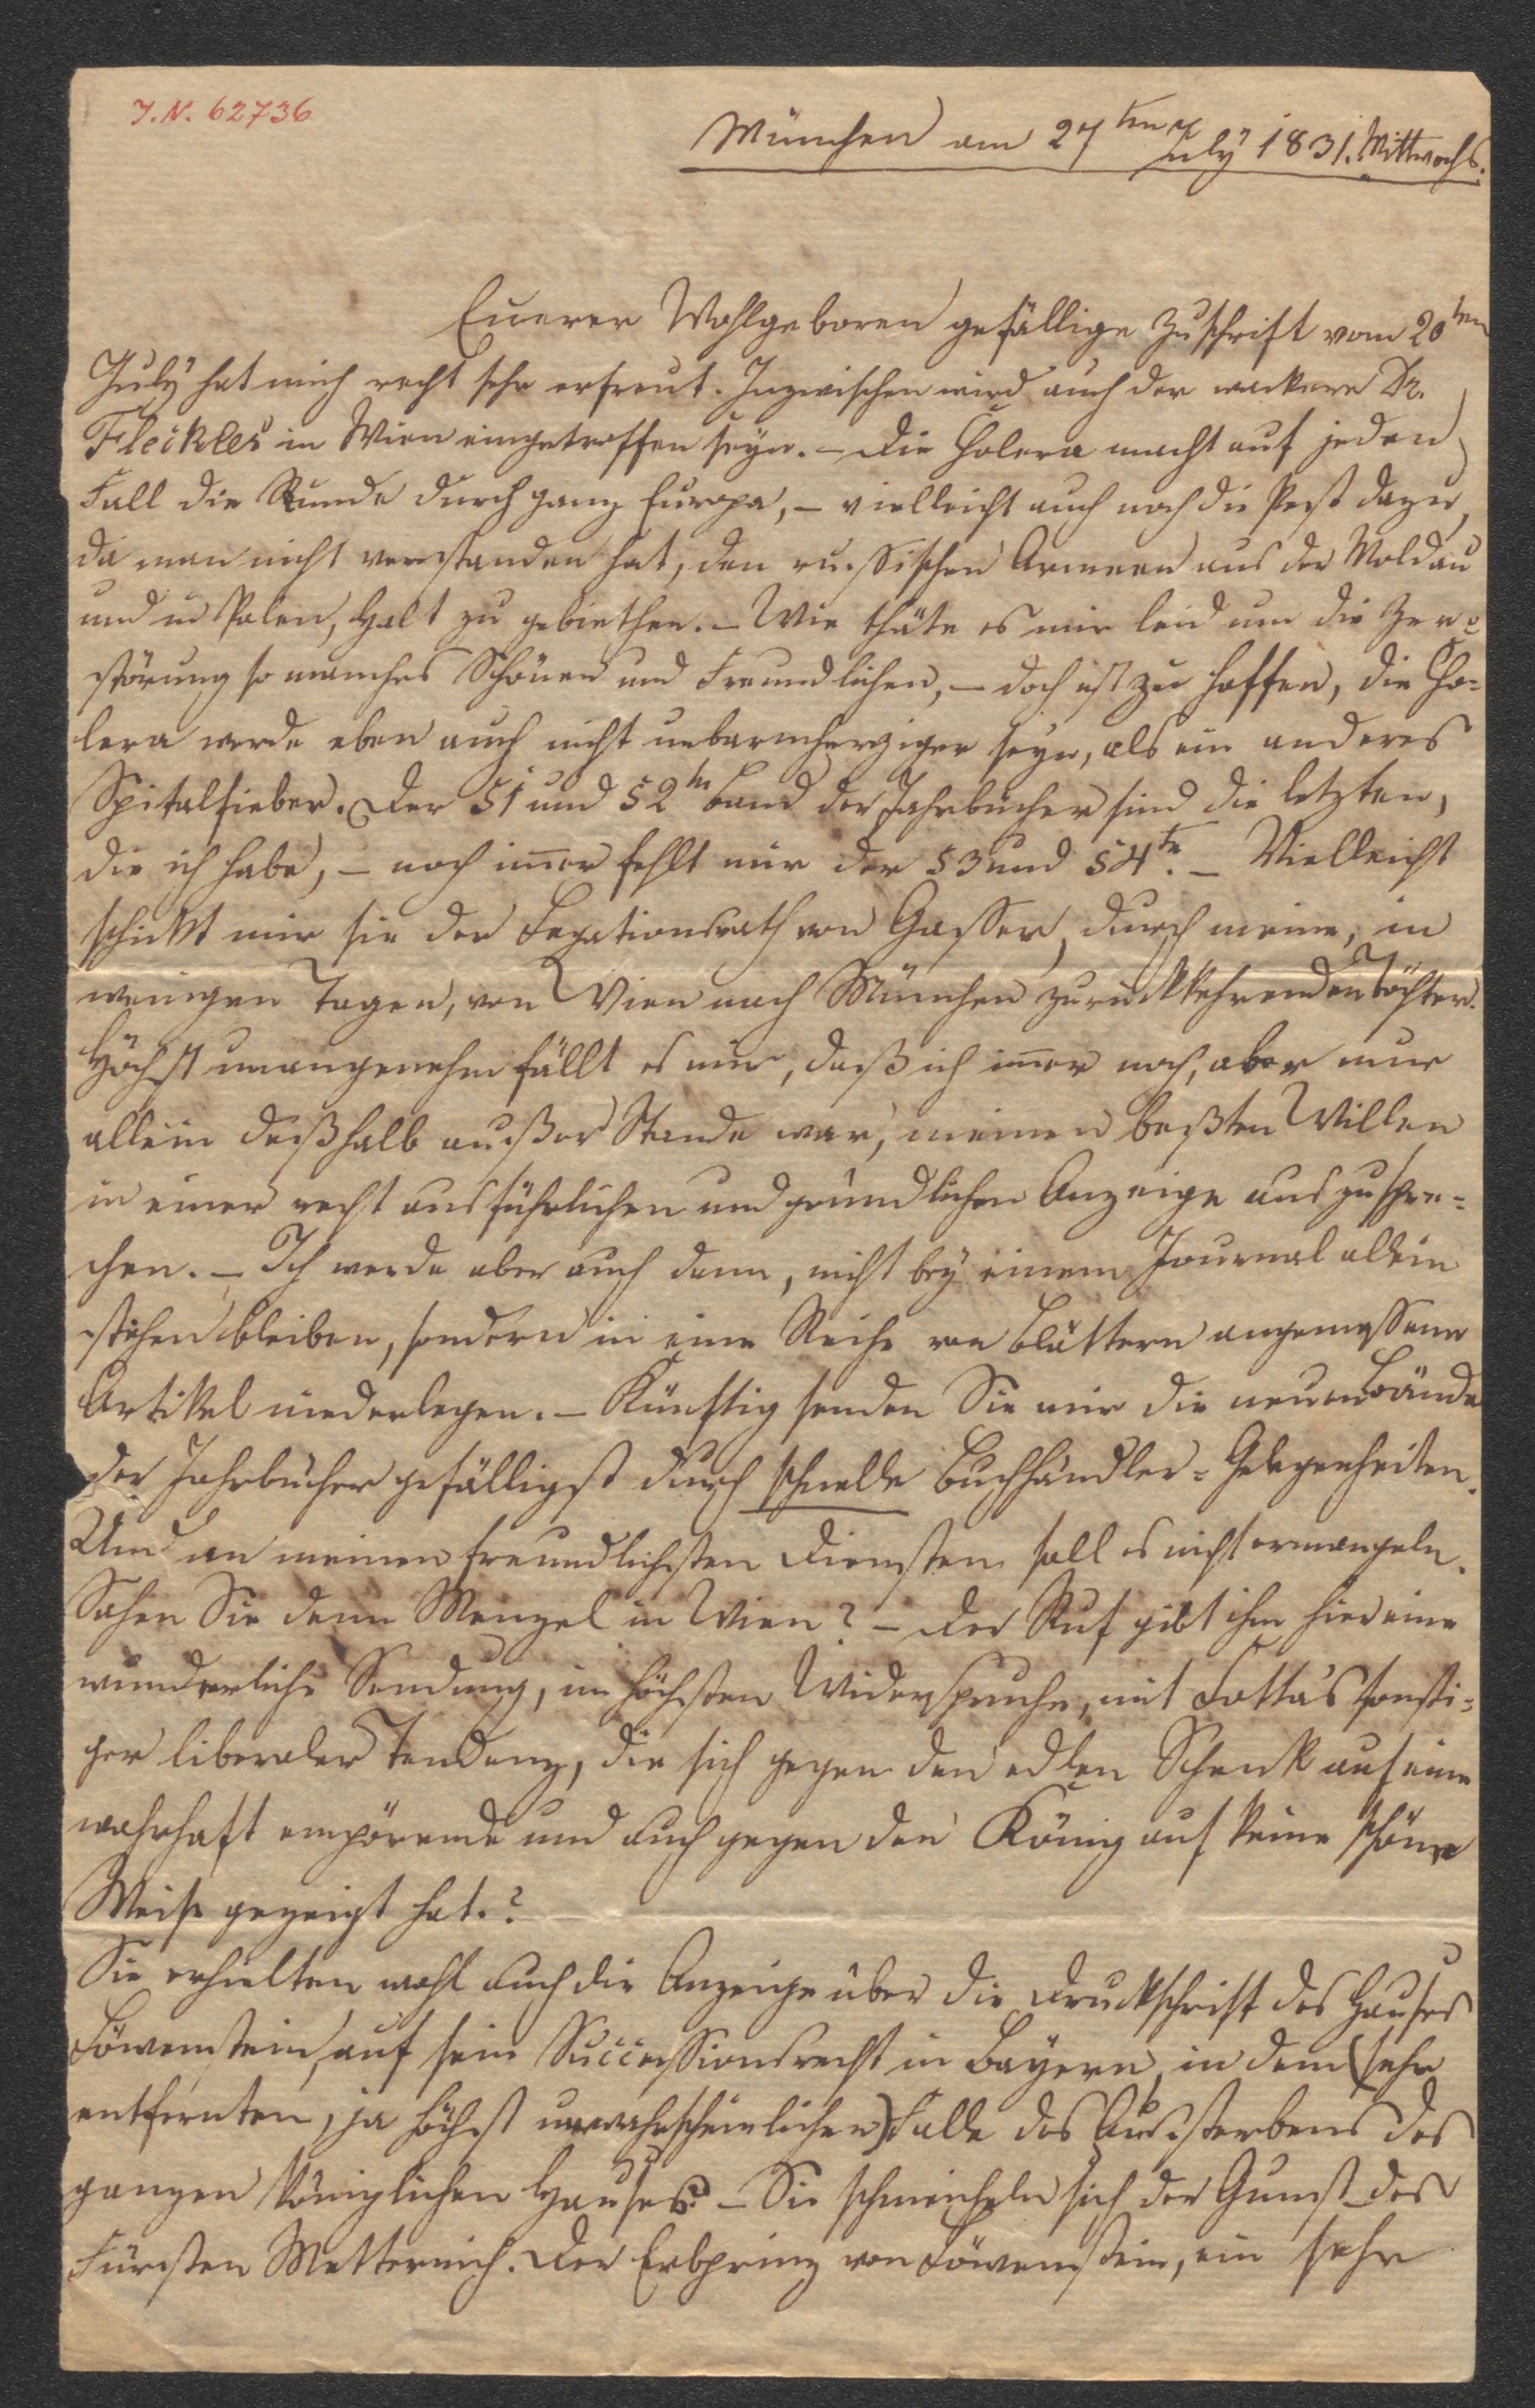 J. N. 62736
München am 27ten July 1831. Mittwochs.
Euerer Wohlgeboren gefällige Zuschrift vom 20ten
July hat mich recht sehr erfreut. Inzwischen wird auch der wackere Dr.
Fleckles in Wien eingetroffen seyn. – Die Cholera macht auf jeden
Fall die Runde durch ganz Europa, – vielleicht auch noch die Pest dazu,
da man nicht verstanden hat, den russischen Armeen aus der Moldau
und in Polen, Halt zu gebiethen. – Wie thäte es mir leid um die Zer=
störung so manches Schönen und Freundlichen, – doch ist zu hoffen, die Cho=
lera werde eben auch nicht unbarmherziger seyn, als ein anderes
Spitalfieber. Der 51 und 52te Band der Jahrbücher sind die letzten,
die ich habe, – noch imer fehlt mir der 53 und 54te. – Vielleicht
schickt mir sie der Legationsrath von Gasser, durch meine, in
wenigen Tagen, von Wien nach München zurückkehrenden Töchter.
Höchst unangenehm fällt es mir, daß ich imer noch, aber nur
allein deßhalb außer Stande war, meinen beßten Willen
in einer recht ausführlichen und gründlichen Anzeige auszuspre=
chen. – Ich werde aber auch dann, nicht bey einem Journal allein
stehen bleiben, sondern in eine Reihe von Blättern angemessene
Artikel niederlegen. – Künftig senden Sie mir die neuen Bände
der Jahrbücher gefälligst durch schnelle Buchhändler=Gelegenheiten.
Und an meinen freundlichsten Diensten soll es nicht ermangeln.
Sahen Sie denn Menzel in Wien? – Der Ruf gibt ihm hier eine
wunderliche Sendung, im höchsten Widerspruche, mit Cotta's sonsti=
ger liberaler Tendenz, die sich gegen den edlen Schenk auf eine
wahrhaft empörende und auch gegen den König auf keine schöne
Weise gezeigt hat.?
Sie erhielten wohl auch die Anzeige über die Druckschrift des Hauses
Löwenstein, auf sein Successionsrecht in Bayern, in dem (sehr
entfernten, ja höchst unwahrscheinlichen) Falle des Aussterbens des
ganzen königlichen Hauses? – Sie schmeicheln sich der Gunst des
Fürsten Metternich. Der Erbprinz von Löwenstein, ein sehr